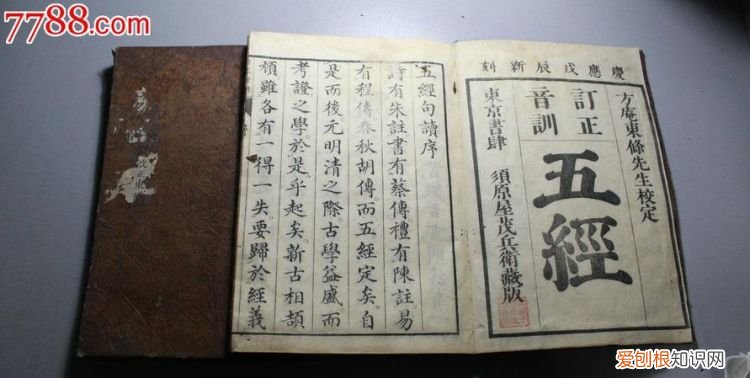 7788.com
慶應戊辰新刻
方庵東條先生校定
訂正
音訓
五經
東京書肆
須原屋茂兵衛藏版
五經句讀序
詩有朱註書有蔡傳禮有陳註易
有程傳春秋胡傳而五經定矣自
是而後元明清之際古學益盛而
考證之學於是乎起矣新古相頡
頏雖各有一得一失要歸於經義
爱刨根知识网